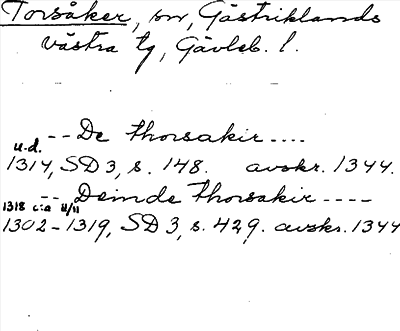 Torsåker, sn, Gästriklands
västra tg, Gävleb. l.
-- De thorsakir ....
u.d.
1314, SD 3, s. 148. avskr. 1344.
-- Deinde thorsakir ----
1318 c:a 11/11
1302-1319, SD 3, s. 429. avskr. 1344